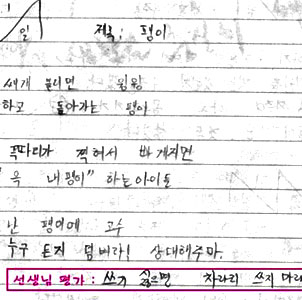 일
제목: 팽이
쎄게 돌리면 윙왕
하고 돌아가는 팽이
찍혀서 빠게지면
"윽 내팽이" 하는아이들
난 팽이에 고수
누구 든지 덤벼라! 상대해주마.
선생님 평가 : 쓰기 싫으면 차라리 쓰지 마라